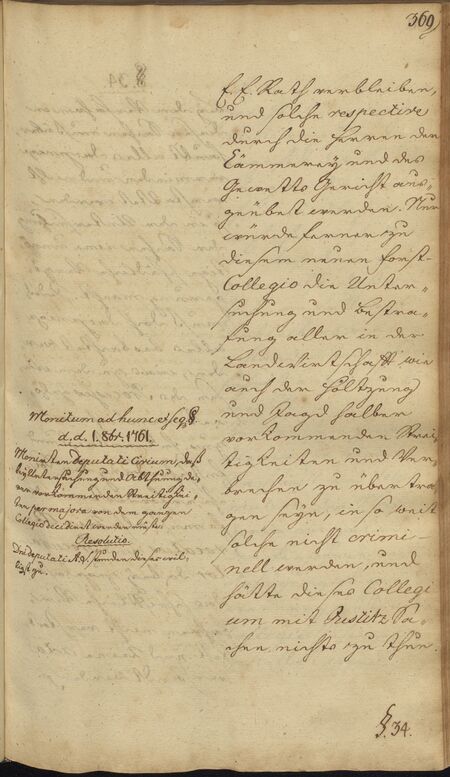 369
E. E. Rath verbleiben,
und solche respective
durch die Herren der
Cämmerey und des
Gewetts Gericht aus-
geübet werden. Nur
würde ferner zu
diesem neuen Forst-
Collegio die Unter-
suchung und Bestra-
fung aller in der
Landwirtschafft wie
auch der Höltzung
und Jagd halber
vorkommenden Strei-
tigkeiten und Ver-
brechen zu übertra-
gen seyn, in so weit
solche nicht crimi-
nell werden, und
hätte dieses Collegi
um mit Justitz Sa-
chen nichts zu thun.
Monitum ad hunc et seq §
d. d. 1. 8br. 1761.
Moniren Deputati Civium, daß
die Untersuchung und Abthuung de-
rer vorkommenden Streitigkei-
ten per majora von dem gantzen
Collegio decidiret werden müste.
Resolutio.
Dni Deputati stunden dieses
§. 34.